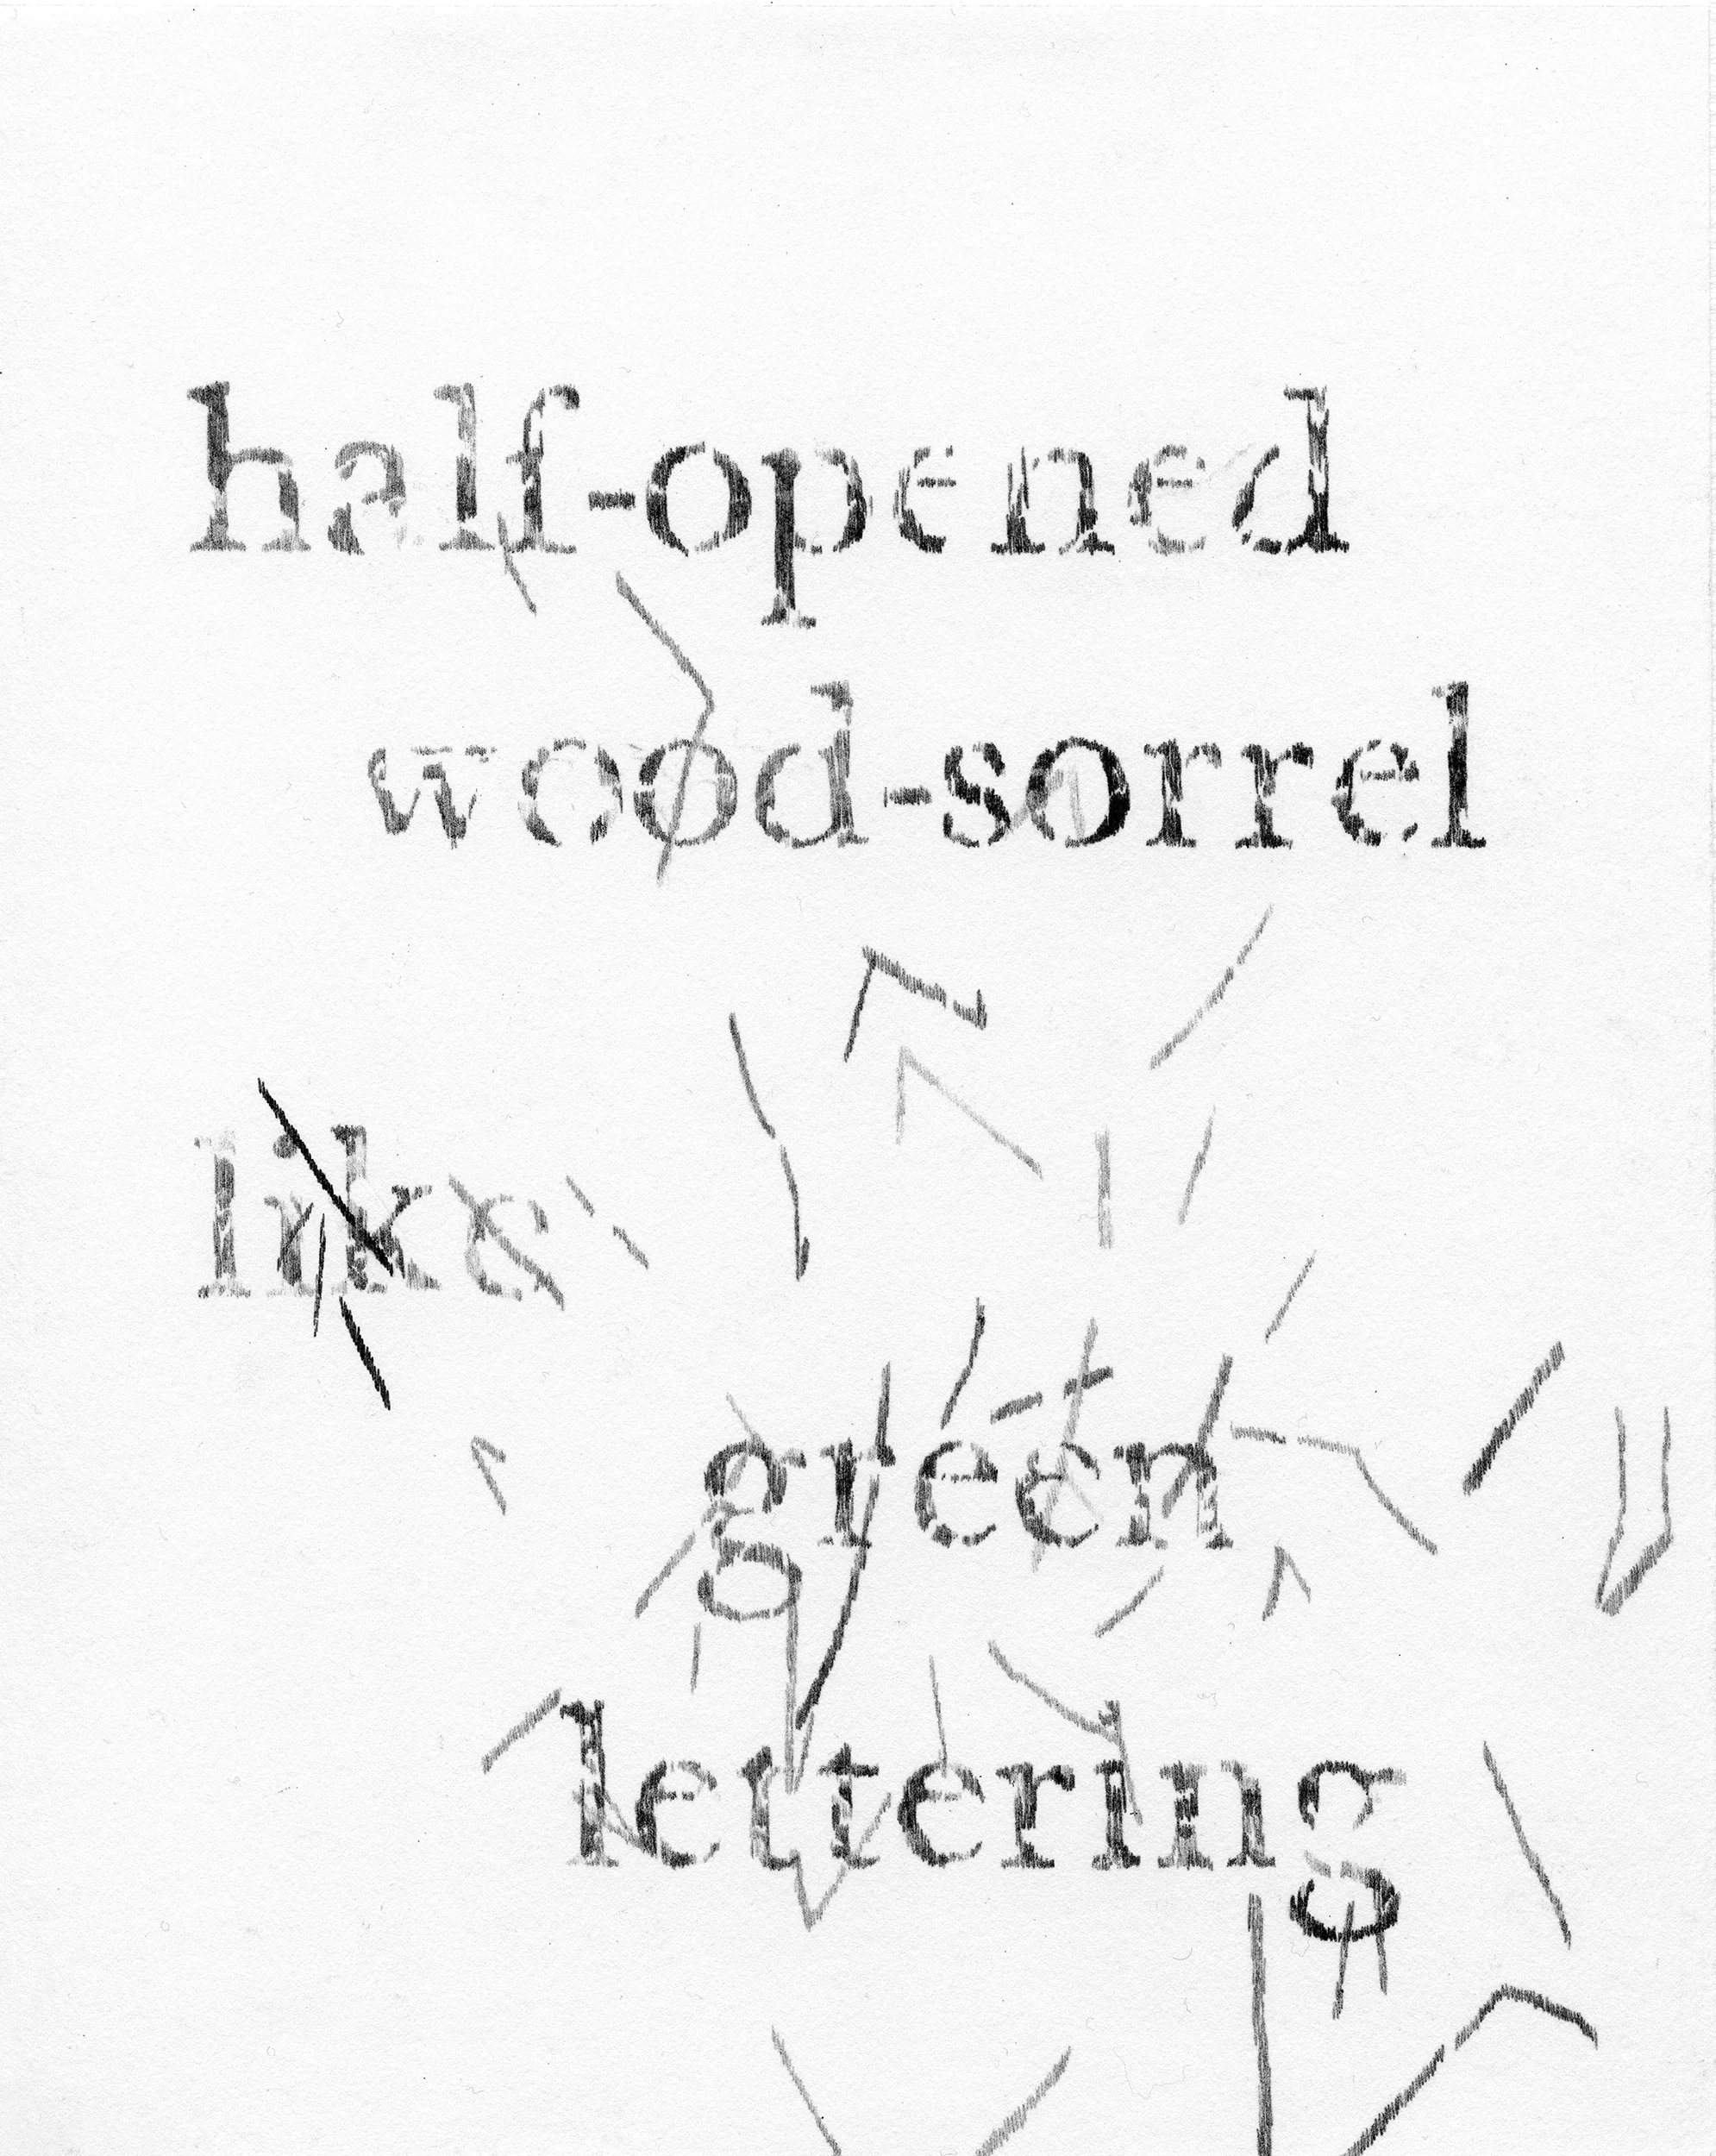 half-opened
wood-sorrel
like
green
lettering